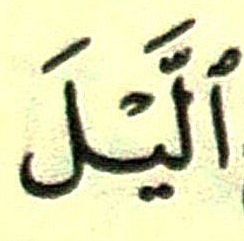 ٱلَّيْلَ